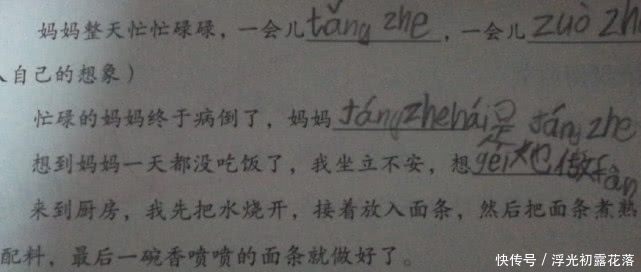 妈妈整天忙忙碌碌，一会儿tǎng zhe，一会儿zuò zh
入自己的想象）
忙碌的妈妈终于病倒了，妈妈tángzhehái是 táng zhe
想到妈妈一天都没吃饭了，我坐立不安，想gěi她做fàn
来到厨房，我先把水烧开，接着放入面条，然后把面条煮熟
配料，最后一碗香喷喷的面条就做好了。
快传号／浮光初露花落